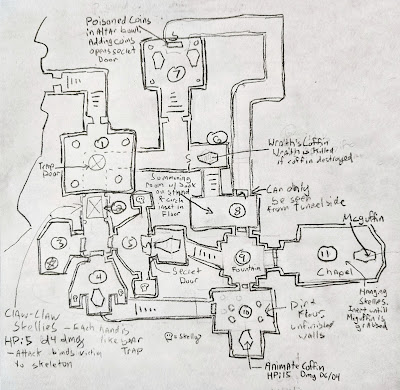 Poisoned Coins
in Altar bowl.
Adding coins
opens secret
Door
7
1
Trap
Door
S
6
Wraith's Coffin
Wraith is killed
if coffin destroyed
Summoning
room w/ book
on stand
& circle
inset in
Floor
8
Can only
be seen
from tunnel side
Mcguffin
2
3
5
4
Secret
Door
9
Fountain
11
Chapel
Claw-Claw
Skellies - Each hand is
HP:5 d4 dmg like bear
- Attack binds victim TRAP
to skeleton
=Skelly
10
Dirt
Floor,
unfinished
walls
Hanging
Skellies.
Inert until
Mcguffin is
grabbed
Animate Coffin
HP:15 Dmg D6/D4